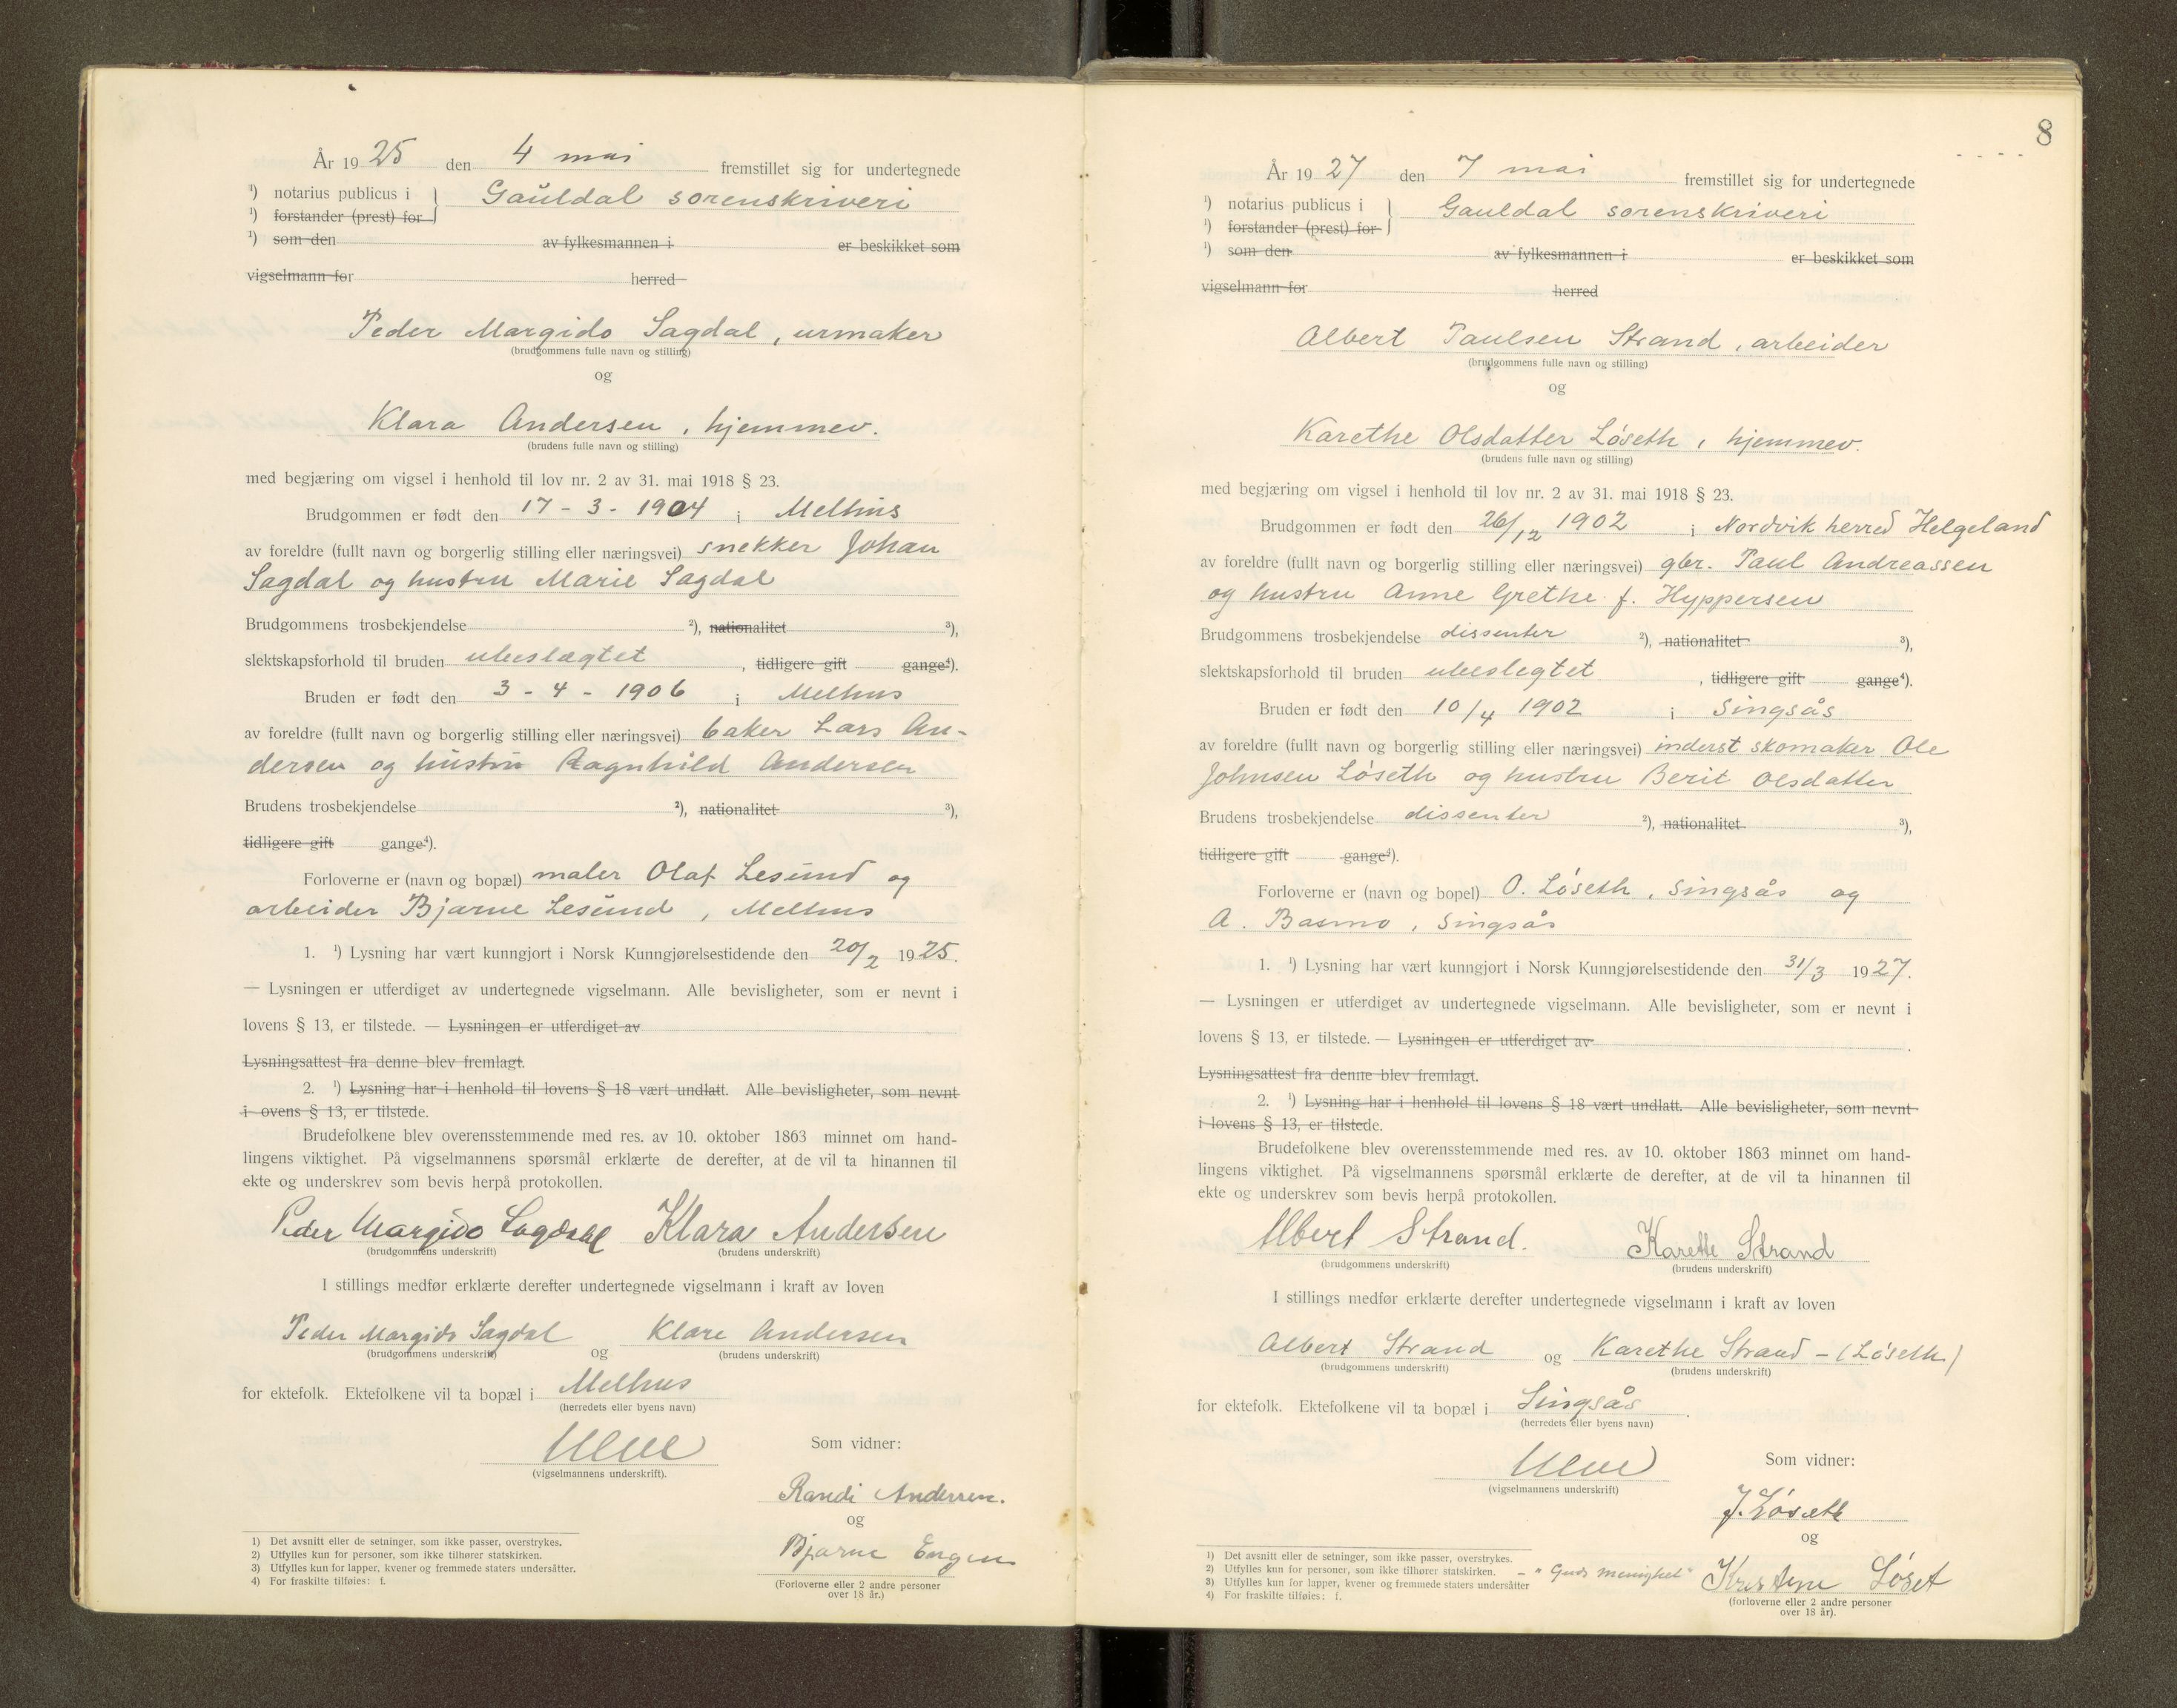 År 1925 den 4 mai fremstillet sig for undertegnede
¹) notarius publicus i } Gauldal sorenskriveri
¹) forstander (prest) for
¹) som den av fylkesmannen i er beskikket som
vigselmann for herred
Peder Margido Sagdal, urmaker
(brudgommens fulle navn og stilling)
og
Klara Andersen, hjemmev.
(brudens fulle navn og stilling)
med begjæring om vigsel i henhold til lov nr. 2 av 31. mai 1918 § 23.
Brudgommen er født den 17 - 3 - 1904 i Melhus
av foreldre (fullt navn og borgerlig stilling eller næringsvei) snekker Johan
Sagdal og hustru Marie Sagdal
Brudgommens trosbekjendelse ²), nationalitet ³),
slektskapsforhold til bruden ubeslægtet, tidligere gift gange⁴).
Bruden er født den 3 - 4 - 1906 i Melhus
av foreldre (fullt navn og borgerlig stilling eller næringsvei) baker Lars An-
dersen og hustru Ragnhild Andersen
Brudens trosbekjendelse ²), nationalitet ³),
tidligere gift gange⁴).
Forloverne er (navn og bopæl) maler Olaf Lesund og
arbeider Bjarne Lesund, Melhus
1. ¹) Lysning har vært kunngjort i Norsk Kunngjørelsestidende den 20/2 1925.
— Lysningen er utferdiget av undertegnede vigselmann. Alle bevisligheter, som er nevnt i
lovens § 13, er tilstede. — Lysningen er utferdiget av
Lysningsattest fra denne blev fremlagt.
2. ¹) Lysning har i henhold til lovens § 18 vært undlatt. Alle bevisligheter, som nevnt
i ovens § 13, er tilstede.
Brudefolkene blev overensstemmende med res. av 10. oktober 1863 minnet om hand-
lingens viktighet. På vigselmannens spørsmål erklærte de derefter, at de vil ta hinannen til
ekte og underskrev som bevis herpå protokollen.
Peder Margido Sagdal Klara Andersen
(brudgommens underskrift) (brudens underskrift)
I stillings medfør erklærte derefter undertegnede vigselmann i kraft av loven
Peder Margido Sagdal og Klara Andersen
(brudgommens underskrift) (brudens underskrift)
for ektefolk. Ektefolkene vil ta bopæl i Melhus
(herredets eller byens navn)
Som vidner:
(vigselmannens underskrift).
Randi Andersen.
og
Bjarne Engen
(Forloverne eller 2 andre personer
over 18 år.)
1) Det avsnitt eller de setninger, som ikke passer, overstrykes.
2) Utfylles kun for personer, som ikke tilhører statskirken.
3) Utfylles kun for lapper, kvener og fremmede staters undersåtter.
4) For fraskilte tilføies: f.
8
År 1927 den 7 mai fremstillet sig for undertegnede
¹) notarius publicus i } Gauldal sorenskriveri
¹) forstander (prest) for
¹) som den av fylkesmannen i er beskikket som
vigselmann for herred
Albert Paulsen Strand, arbeider
(brudgommens fulle navn og stilling)
og
Karethe Olsdatter Løseth, hjemmev.
(brudens fulle navn og stilling)
med begjæring om vigsel i henhold til lov nr. 2 av 31. mai 1918 § 23.
Brudgommen er født den 26/12 1902 i Nordvik herred Helgeland
av foreldre (fullt navn og borgerlig stilling eller næringsvei) gbr. Paul Andreassen
og hustru Anne Grethe f. Hyppersen
Brudgommens trosbekjendelse dissenter ²), nationalitet ³),
slektskapsforhold til bruden ubeslegtet, tidligere gift gange⁴).
Bruden er født den 10/4 1902 i Singsås
av foreldre (fullt navn og borgerlig stilling eller næringsvei) inderst skomaker Ole
Johnsen Løseth og hustru Berit Olsdatter
Brudens trosbekjendelse dissenter ²), nationalitet ³),
tidligere gift gange⁴).
Forloverne er (navn og bopel) O. Løseth, Singsås og
A. Basmo, Singsås
1. ¹) Lysning har vært kunngjort i Norsk Kunngjørelsestidende den 31/3 1927.
— Lysningen er utferdiget av undertegnede vigselmann. Alle bevisligheter, som er nevnt i
lovens § 13, er tilstede. — Lysningen er utferdiget av .
Lysningsattest fra denne blev fremlagt.
2. ¹) Lysning har i henhold til lovens § 18 vært undlatt. Alle bevisligheter, som nevnt
i lovens § 13, er tilstede.
Brudefolkene blev overensstemmende med res. av 10. oktober 1863 minnet om hand-
lingens viktighet. På vigselmannens spørsmål erklærte de derefter, at de vil ta hinannen til
ekte og underskrev som bevis herpå protokollen.
Albert Strand. Karethe Strand
(brudgommens underskrift) (brudens underskrift)
I stillings medfør erklærte derefter undertegnede vigselmann i kraft av loven
Albert Strand og Karethe Strand - (Løseth)
(brudgommens underskrift) (brudens underskrift)
for ektefolk. Ektefolkene vil ta bopæl i Singsås.
(herredets eller byens navn)
Som vidner:
(vigselmannens underskrift)
J. Løseth
og
Kristine Løset
(forloverne eller 2 andre personer
over 18 år).
1) Det avsnitt eller de setninger, som ikke passer, overstrykes.
2) Utfylles kun for personer, som ikke tilhører statskirken. - "Guds menighet"
3) Utfylles kun for lapper, kvener og fremmede staters undersåtter
4) For fraskilte tilføies: f.